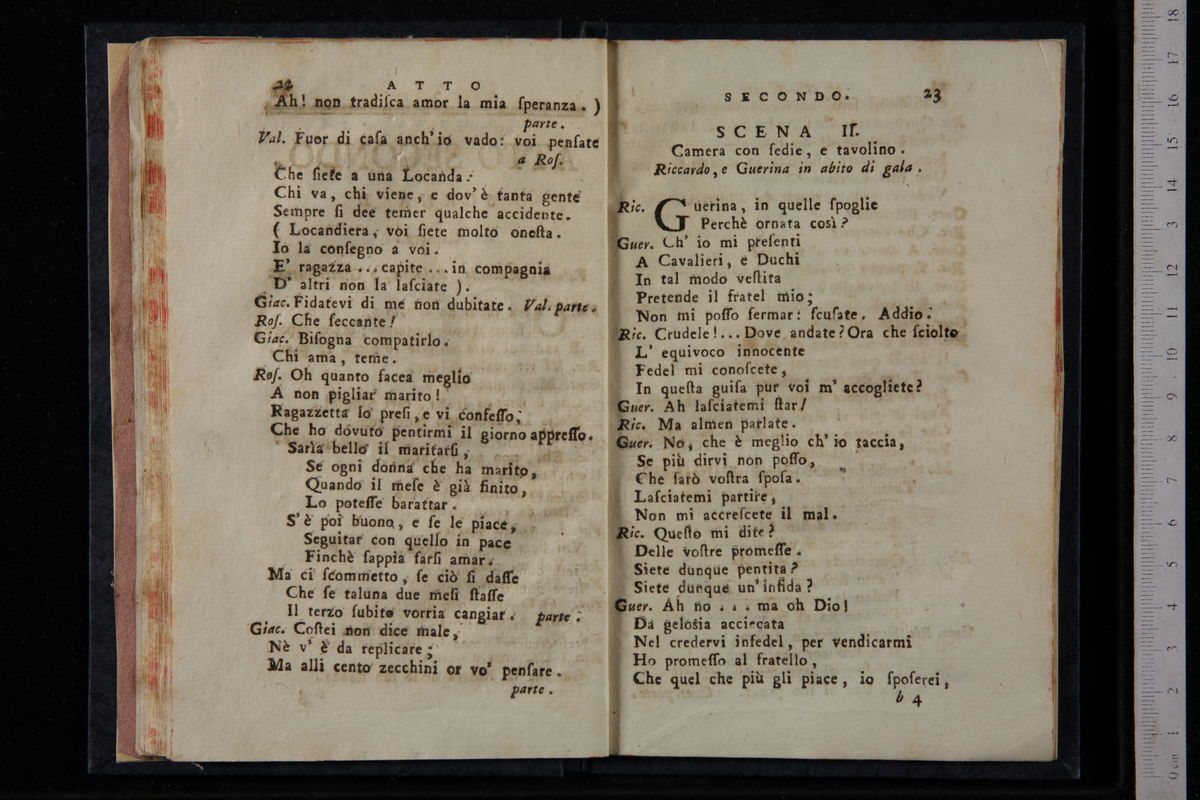 22 ATTO
Ah! non tradiſca amor la mia ſperanza. )
parte.
Val. Fuor di caſa anch' io vado: voi penſate
a Roſ.
Che ſiete a una Locanda:
Chi va, chi viene, e dov' è tanta gente
Sempre ſi dee temer qualche accidente.
( Locandiera, voi ſiete molto oneſta.
Io la conſegno a voi.
E' ragazza ... capite ... in compagnia
D' altri non la laſciate ).
Giac. Fidatevi di me non dubitate. Val. parte.
Roſ. Che ſeccante!
Giac. Biſogna compatirlo.
Chi ama, teme.
Roſ. Oh quanto facea meglio
A non pigliar marito!
Ragazzetta lo preſi, e vi confeſſo,
Che ho dovuto pentirmi il giorno appreſſo.
Sarìa bello il maritarſi,
Se ogni donna che ha marito,
Quando il meſe è già finito,
Lo poteſſe barattar.
S' è poi buono, e ſe le piace,
Seguitar con quello in pace
Finchè ſappia farſi amar.
Ma ci ſcommetto, ſe ciò ſi daſſe
Che ſe taluna due meſi ſtaſſe
Il terzo ſubito vorria cangiar. parte.
Giac. Coſtei non dice male,
Nè v' è da replicare;
Ma alli cento zecchini or vo' penſare.
parte.
SECONDO. 23
SCENA II.
Camera con ſedie, e tavolino.
Riccardo, e Guerina in abito di gala.
Ric. Guerina, in quelle ſpoglie
Perchè ornata così?
Guer. Ch' io mi preſenti
A Cavalieri, e Duchi
In tal modo veſtita
Pretende il fratel mio;
Non mi poſſo fermar: ſcuſate. Addio.
Ric. Crudele!... Dove andate? Ora che ſciolto
L' equivoco innocente
Fedel mi conoſcete,
In queſta guiſa pur voi m' accogliete?
Guer. Ah laſciatemi ſtar!
Ric. Ma almen parlate.
Guer. No, che è meglio ch' io taccia,
Se più dirvi non poſſo,
Che ſarò voſtra ſpoſa.
Laſciatemi partire,
Non mi accreſcete il mal.
Ric. Queſto mi dite?
Delle voſtre promeſſe.
Siete dunque pentita?
Siete dunque un' infida?
Guer. Ah no ... ma oh Dio!
Da geloſia acciecata
Nel credervi infedel, per vendicarmi
Ho promeſſo al fratello,
Che quel che più gli piace, io ſpoſerei,
b 4